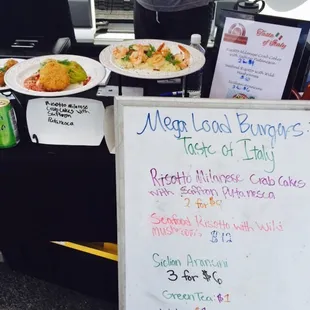 Taste of Italy
Risotto Milanese
Crab Cakes with
Saffron
Putanesca
Mega Load Burgers:
Taste of Italy
Risotto Milanese Crab Cakes
with Saffron Putanesca
2 for
Seafood Risotto with Wild
Mushrooms $12
Sicilian Arancini
3 for $6
Green Tea: $1